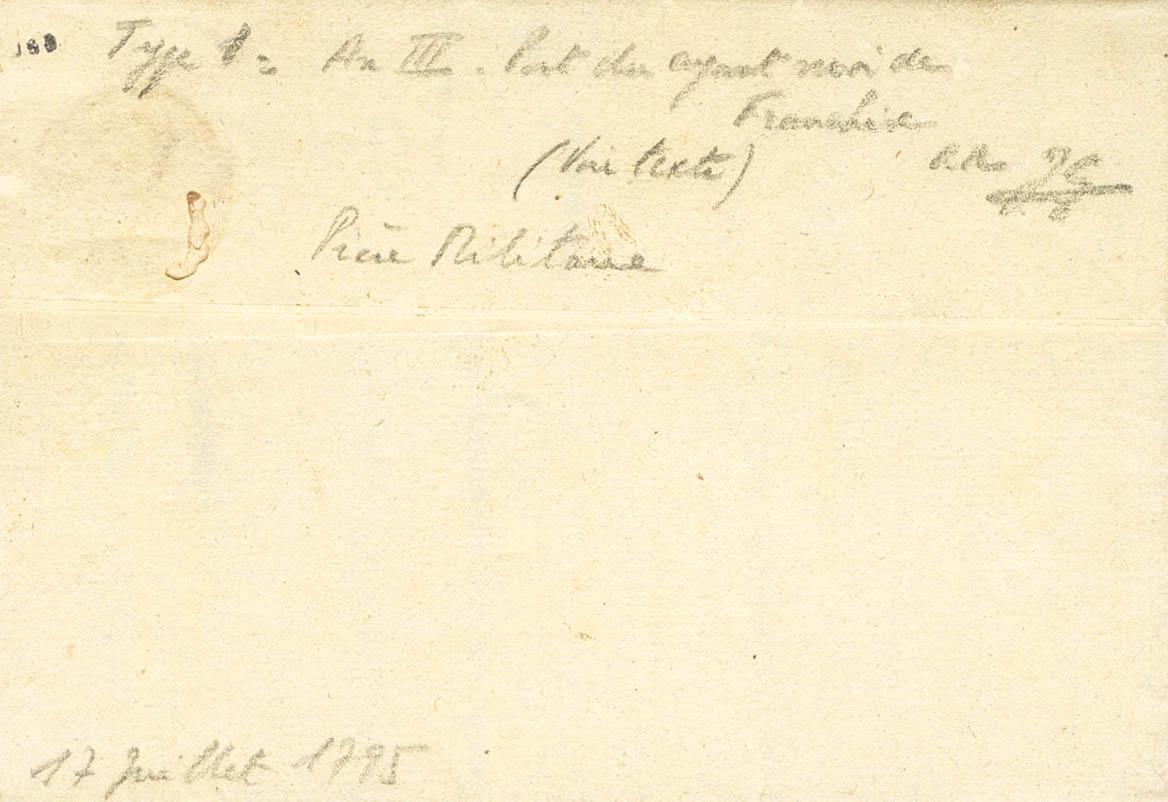 Type 1 = An III. Port du ayant droit de
Franchise
(Voir texte)
Pièce Militaire
17 Juillet 1795